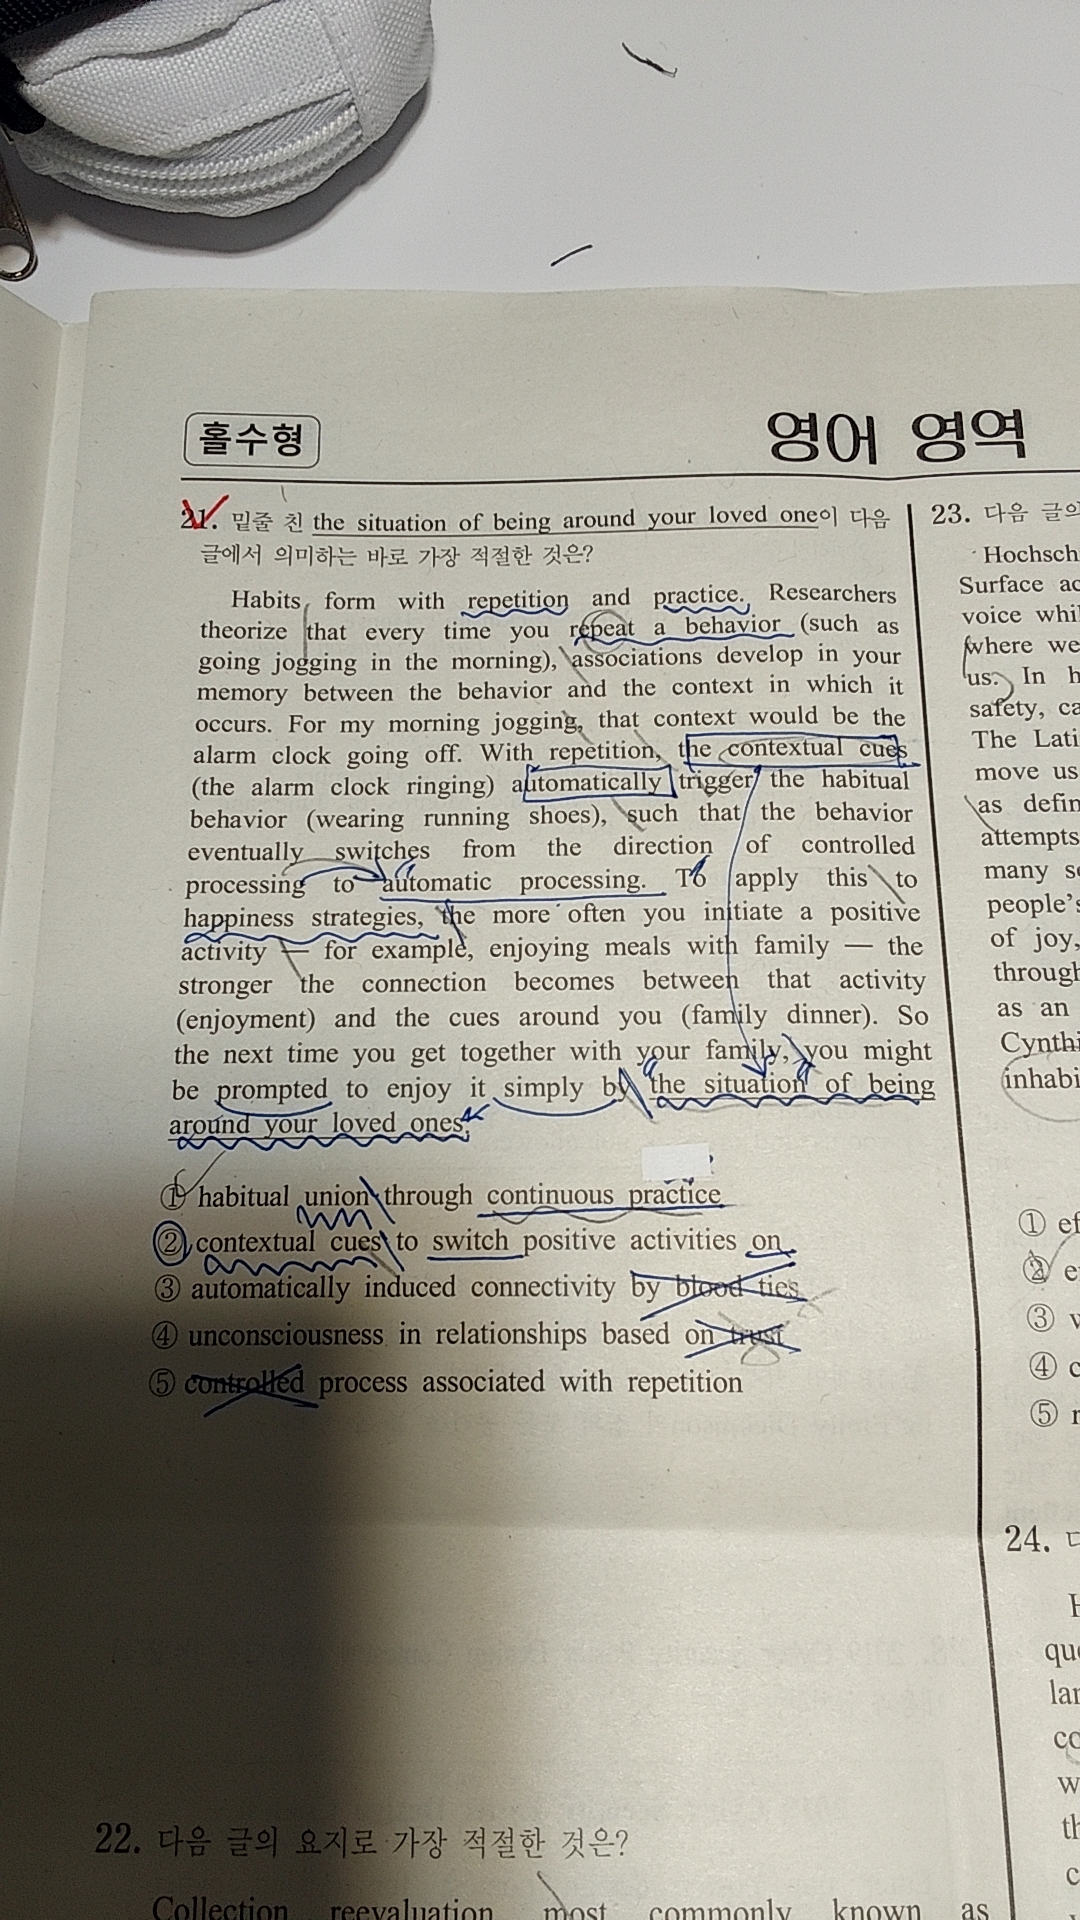 홀수형
영어 영역
21. 밑줄 친 the situation of being around your loved one이 다음
글에서 의미하는 바로 가장 적절한 것은?
Habits form with repetition and practice. Researchers
theorize that every time you repeat a behavior (such as
going jogging in the morning), associations develop in your
memory between the behavior and the context in which it
occurs. For my morning jogging, that context would be the
alarm clock going off. With repetition, the contextual cues
(the alarm clock ringing) automatically trigger the habitual
behavior (wearing running shoes), such that the behavior
eventually switches from the direction of controlled
processing to automatic processing. To apply this to
happiness strategies, the more often you initiate a positive
activity — for example, enjoying meals with family — the
stronger the connection becomes between that activity
(enjoyment) and the cues around you (family dinner). So
the next time you get together with your family, you might
be prompted to enjoy it simply by the situation of being
around your loved ones.
① habitual union through continuous practice
② contextual cues to switch positive activities on
③ automatically induced connectivity by blood ties
④ unconsciousness in relationships based on trust
⑤ controlled process associated with repetition
22. 다음 글의 요지로 가장 적절한 것은?
Collection reevaluation most commonly known as
23. 다음 글의
Hochsch
Surface ac
voice whil
where we
us. In h
safety, ca
The Lati
move us
as defin
attempts
many s
people's
of joy,
through
as an
Cynthi
inhabi
① ef
② e
③ v
④ c
⑤ r
24.
H
qu
lar
co
w
th
c